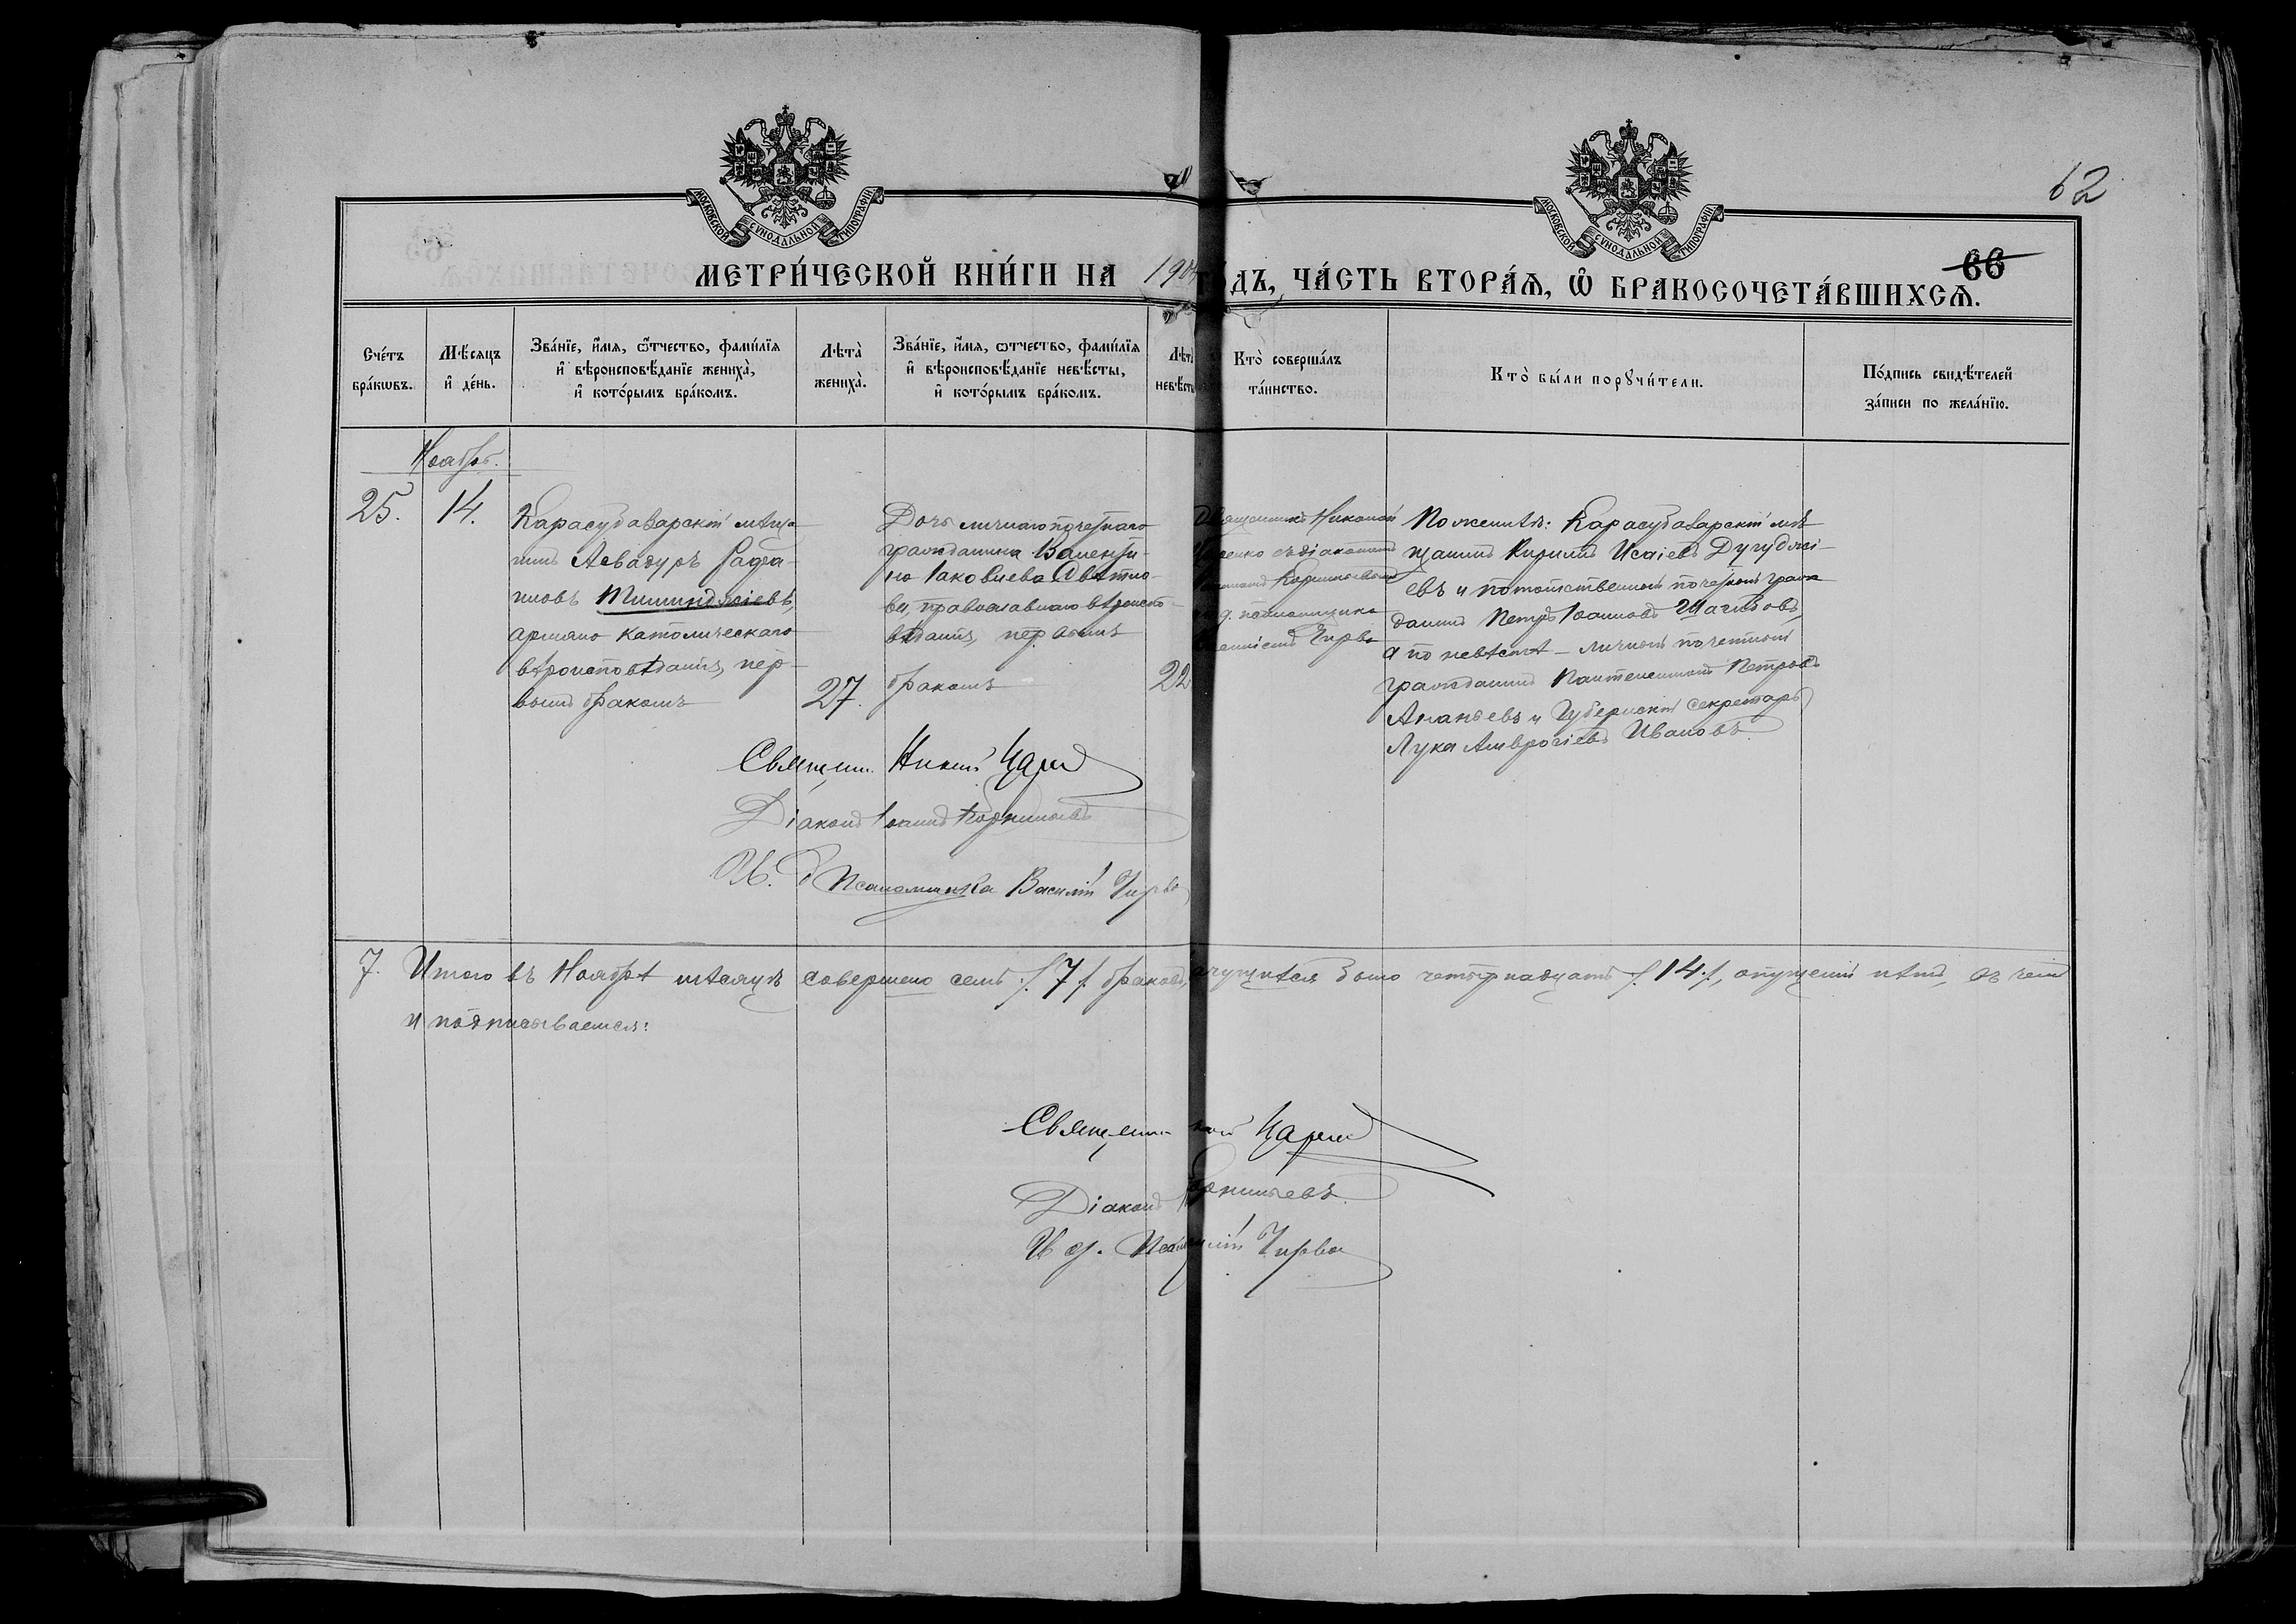 62
66
МОСКОВСКОЙ СѴНОДАЛЬНОЙ ТИПОГРАФІИ
МОСКОВСКОЙ СѴНОДАЛЬНОЙ ТИПОГРАФІИ
МЕТРИ́ЧЕСКОЙ КНИ́ГИ НА 190
ДЪ, ЧА́СТЬ ВТОРА́Ѧ, Ѽ БРАКОСОЧЕТА́ВШИХСѦ.
Сче́тъ
бра́кѡвъ.
Мѣ́сяцъ
и҆ де́нь.
Зва́нїе, и҆́мѧ, ѻ҆́тчество, фами́лїѧ
и҆ вѣроисповѣ́данїе жениха̀,
и҆ кото́рымъ бра́комъ.
Лѣта̀
жениха̀.
Зва́нїе, и҆́мѧ, ѻ҆́тчество, фами́лїѧ
и҆ вѣроисповѣ́данїе невѣ́сты,
и҆ кото́рымъ бра́комъ.
Лѣта
невѣсты
Кто̀ соверша́лъ
та́инство.
Кто̀ бы́ли порꙋчи́тели.
По́дпись свидѣ́телей
за́писи по жела́нїю.
Ноябрь.
25.
14.
Карасубазарскій мѣща-
нинъ Асвадуръ Рафа-
иловъ Тишинджіевъ,
армяно католическаго
вѣроисповѣданія, пер-
вымъ бракомъ
27.
Дочь личнаго почетнаго
гражданина Валенти-
на Іаковлева Свѣтло-
ва, православнаго вѣроиспо-
вѣданія, первымъ
бракомъ
22
Никонъ
съ діакономъ
д. псаломщика
Чирва
По женихѣ: Карасубазарскій мѣ-
щанинъ Кириллъ Исаіевъ Дугуджі-
евъ и потомственный почетный граж-
данинъ Петръ Іоанновъ Шагиновъ,
а по невѣстѣ - личный почетный
гражданинъ Пантелеимонъ Петровъ
Ананьевъ и Губернскій Секретарь
Лука Амвросіевъ Ивановъ.
Священн. Никонъ Царен
Діаконъ Іоаннъ
И. д. Псаломщика Василій Чирва
7. Итого въ Ноябрѣ мѣсяцѣ совершено семь /.7/. браковъ, было четырнадцать /.14./, опущеній нѣтъ, въ чемъ
и подписываемся:
Священн Царен
Діаконъ
И. д. Чирва